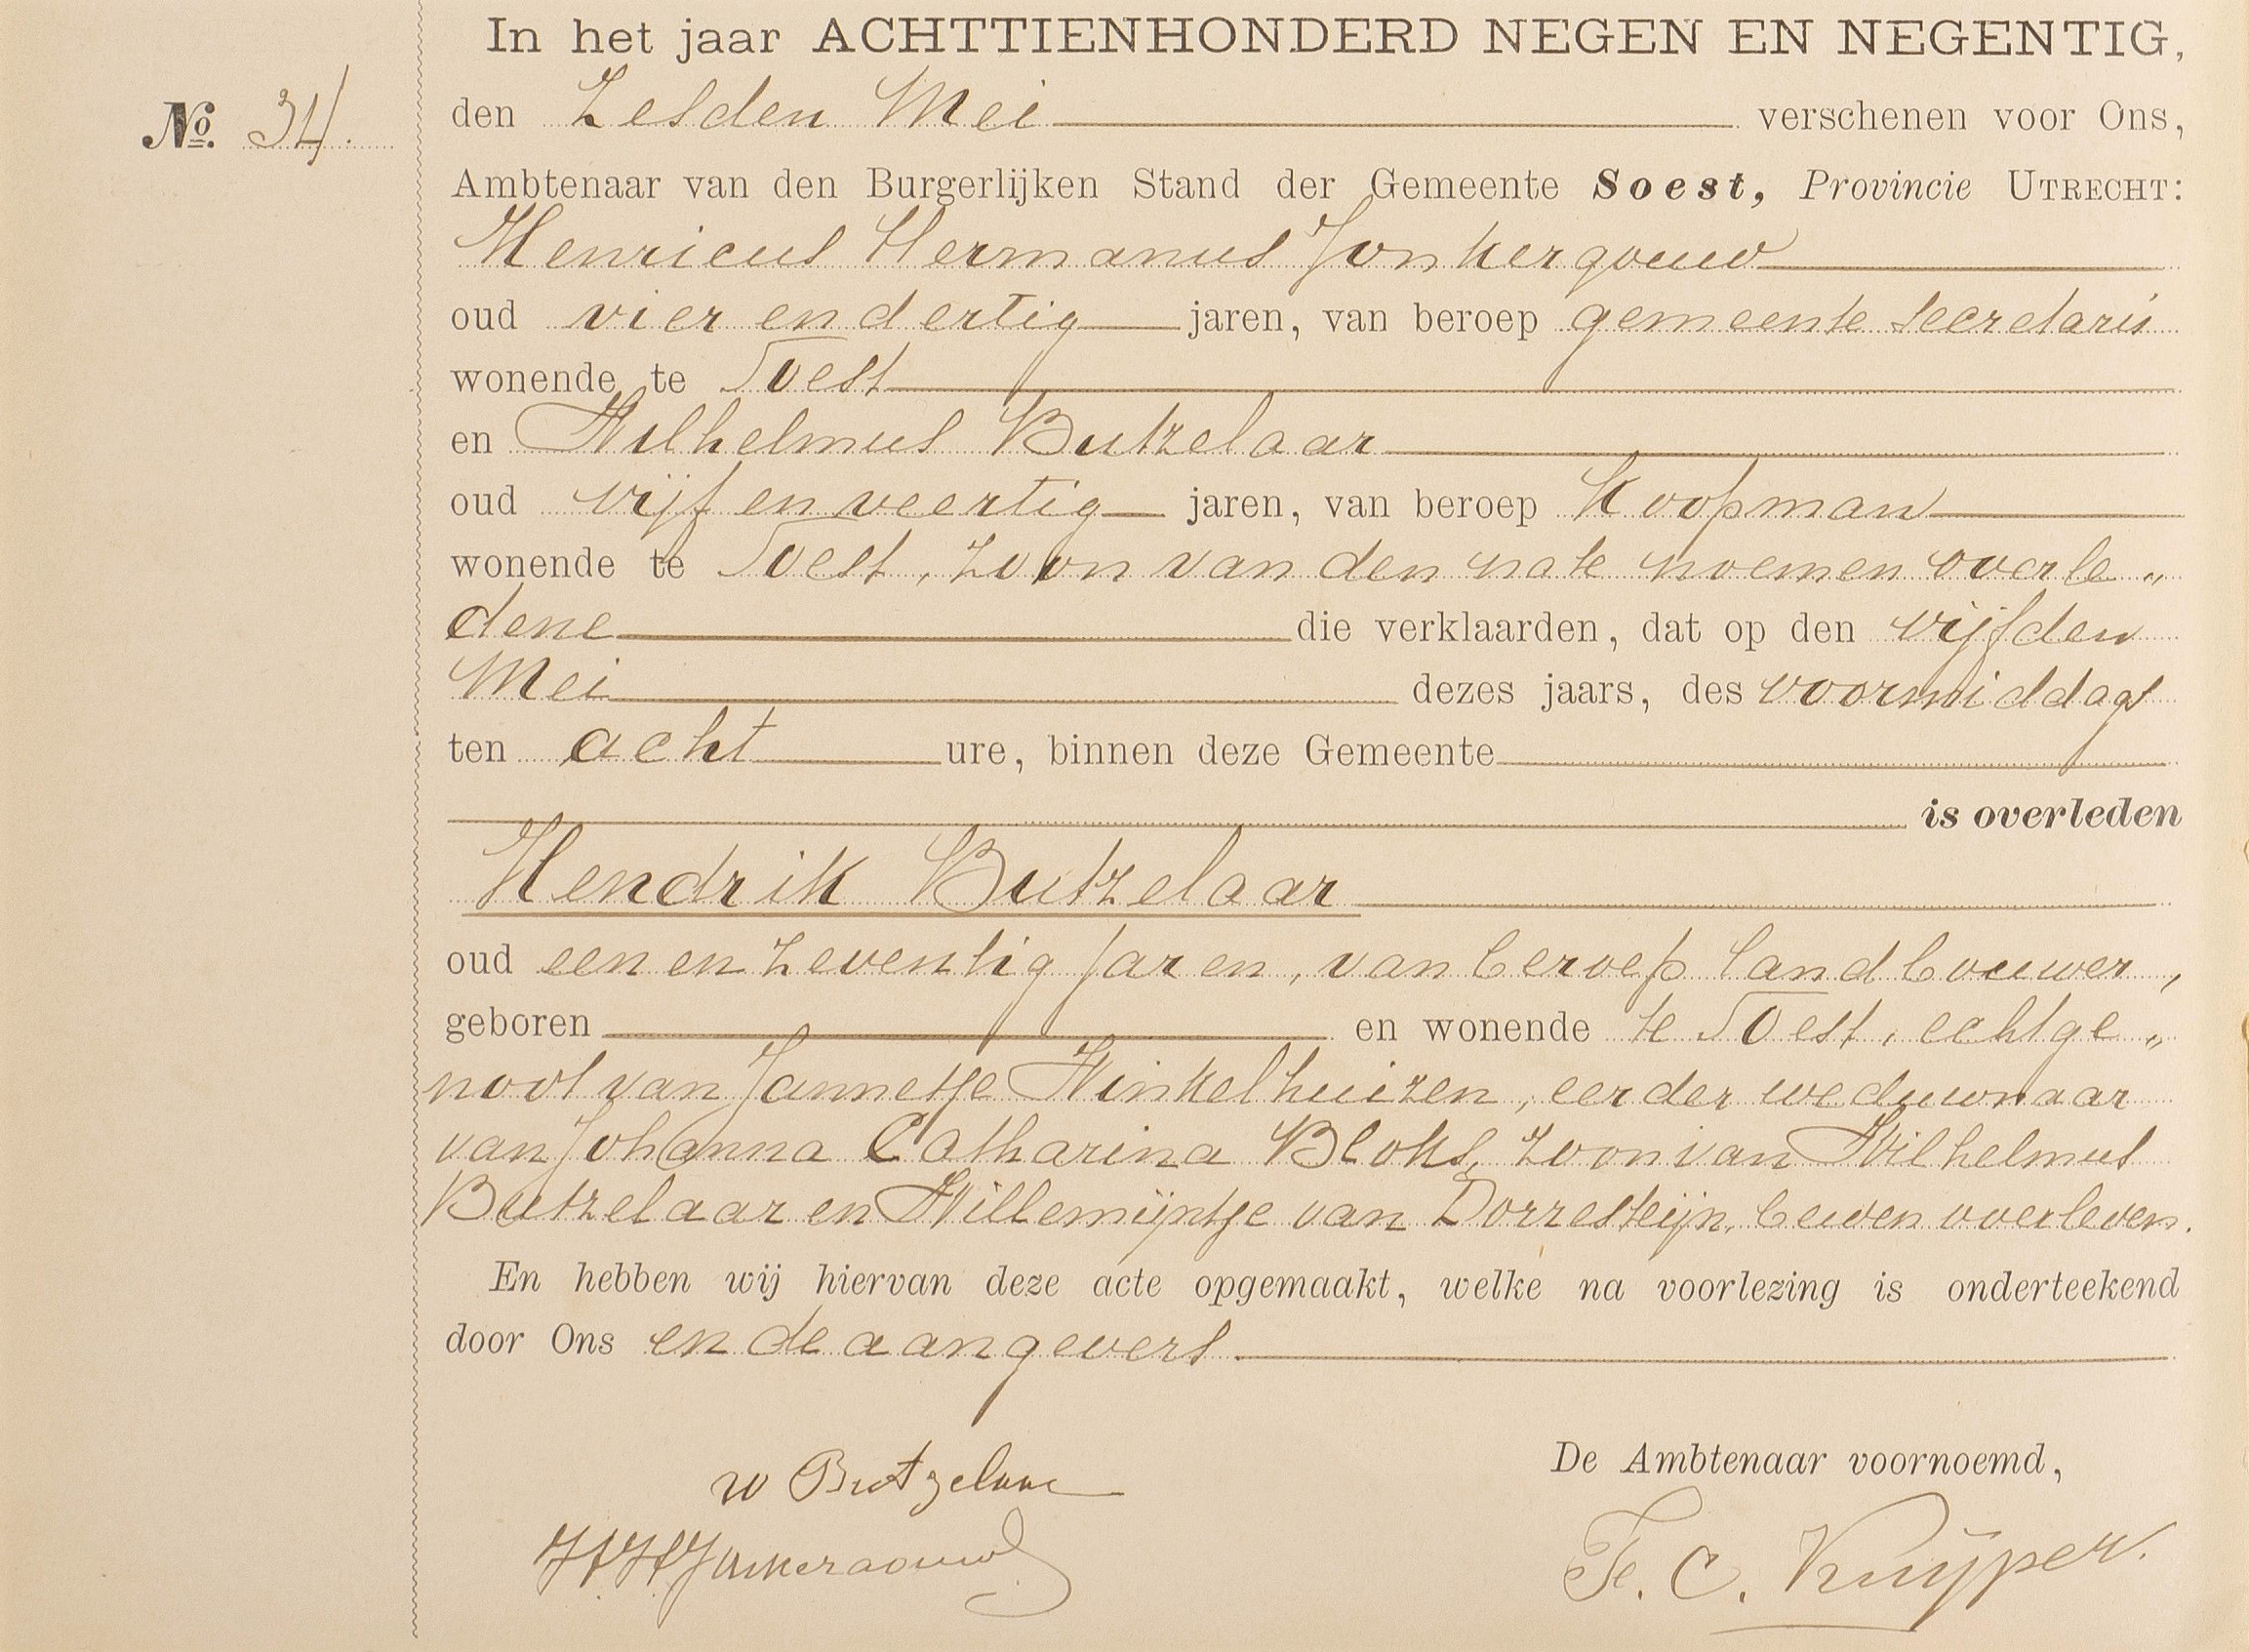 In het jaar ACHTTIENHONDERD NEGEN EN NEGENTIG,
No. 34.
den Zesden Mei verschenen voor Ons,
Ambtenaar van den Burgerlijken Stand der Gemeente Soest, Provincie UTRECHT:
Henricus Hermanus Jonkergouw
oud vier en dertig jaren, van beroep gemeente secretaris
wonende te Soest
en Wilhelmus Butzelaar
oud vijf en veertig jaren, van beroep Koopman
wonende te Soest, zoon van den na te noemen overle„
dene die verklaarden, dat op den vijfden
Mei dezes jaars, des voormiddags
ten acht ure, binnen deze Gemeente
is overleden
Hendrik Butzelaar
oud een en zeventig jaren, van beroep landbouwer,
geboren en wonende te Soest, echtge„
noot van Jannetje Hinkelhuizen, eerder weduwnaar
van Johanna Catharina Bloks, zoon van Wilhelmus
Butzelaar en Willemijntje van Dorresteijn, beiden overleden.
En hebben wij hiervan deze acte opgemaakt, welke na voorlezing is onderteekend
door Ons en de aangevers.
De Ambtenaar voornoemd,
W Butzelaar
HHJonkergouw
Fr. C. Kuijper.